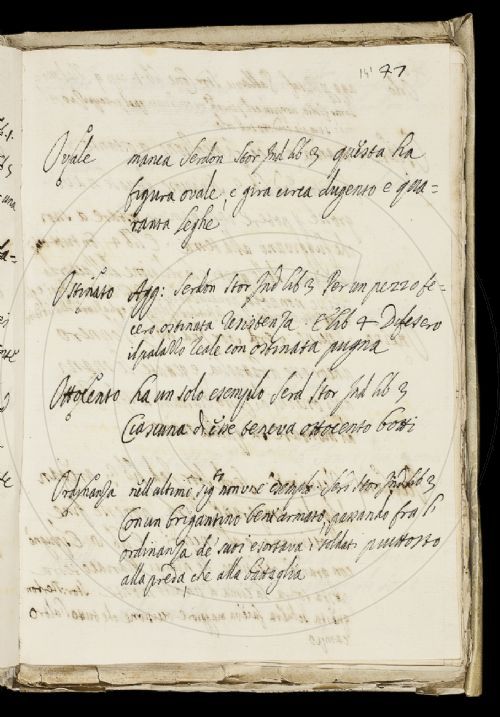 141 47
Ovale manca Serdon Stor Ind lib 3 questa ha
figura ovale, e gira circa dugento e qua=
ranta leghe
Ostinato Agg: Serdon Stor Ind lib 3 Per un pezzo fe=
cero ostinata resistenza. E lib 4 Difesero
il palazzo reale con ostinata pugna
Ottocento ha un solo esemplo Serd Stor Ind lib 3
Ciascuna di esse teneva ottocento botti
Ordinanza nell'altimo sigto non v'è esemplo. Ser: Stor Ind lib 3
Con un brigantino ben armato, passando fra l'
ordinanza de' suoi esortava i soldati piuttosto
alla preda, che alla battaglia